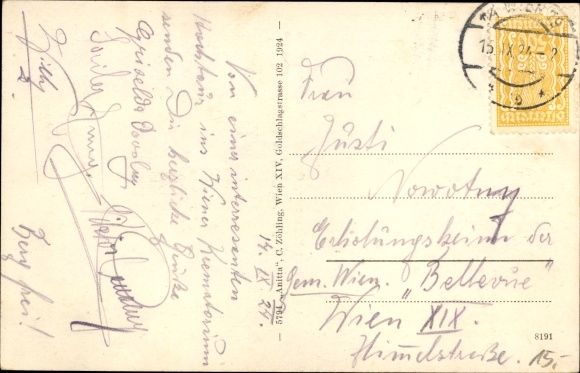 Von einer interessanten
Hochtour ins Wiener Krematorium
senden Dir herzliche Grüße
Griselda
Willy
Berg frei!
14. IX. 24.
— 5794 „Anitta", C. Zöhling, Wien XIV, Goldschlagstrasse 102 1924 —
WIEN
15. IX. 24
Frau
Justi
Nowotny
Erholungsheim der
Gem. Wien. „Bellevue"
Wien XIX.
Himmelstraße.
8191
15.-